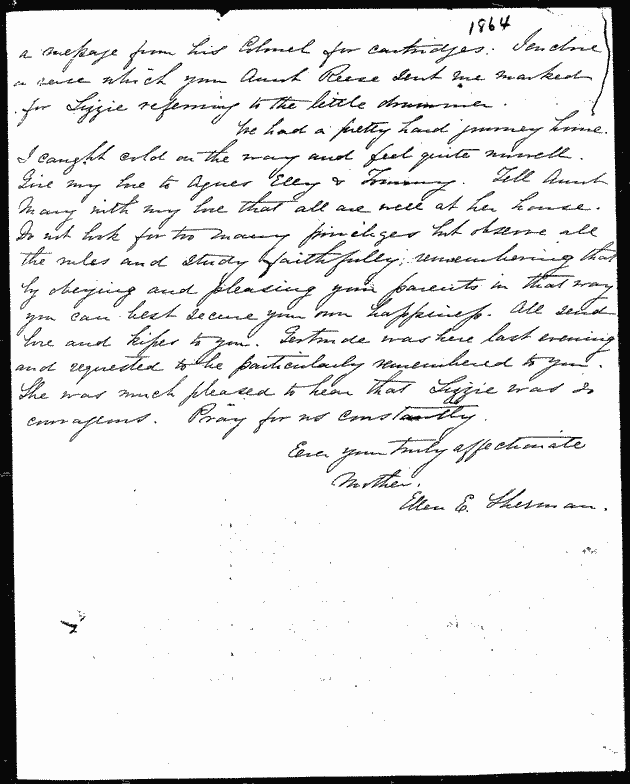 1864
a message from his Colonel for cartridges. I enclose
a verse which your Aunt Reese sent me marked
for Lizzie referring to the little drummer.
We had a pretty hard journey home.
I caught cold on the way and feel quite unwell.
Give my love to Agnes Elly & Tommy. Tell Aunt
Mary with my love that all are well at her house.
Do not look for too many privileges but observe all
the rules and study faithfully; remembering that
by obeying and pleasing your parents in that way
you can best secure your own happiness. All send
love and kisses to you. Gertrude was here last evening
and requested to be particularly remembered to you.
She was much pleased to hear that Lizzie was so
courageous. Pray for us constantly.
Ever your truly affectionate
Mother.
Ellen E. Sherman.